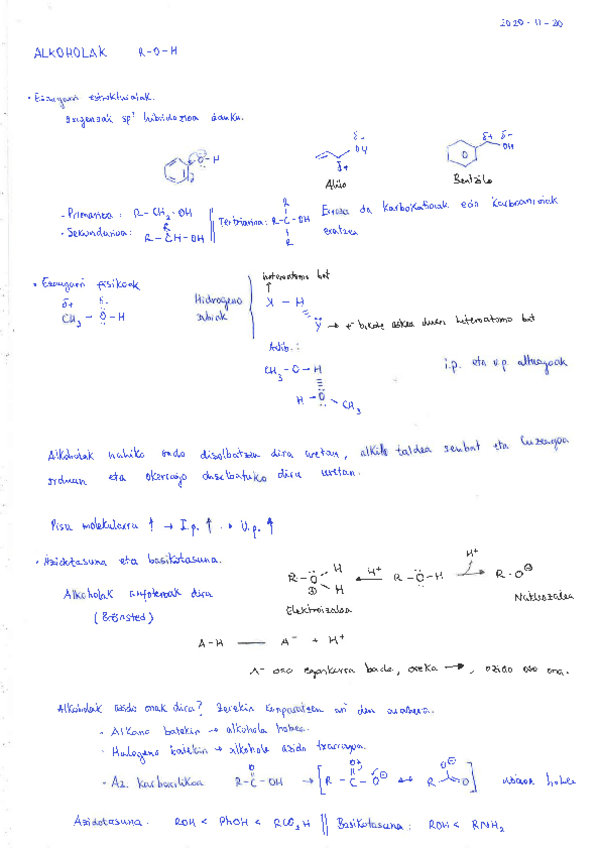 2020-11-20
ALKOHOLAK R-O-H
• Ezaugarri estrukturalak.
Oxigenoak sp³ hibridazioa dauku.
O-H
δ- OH δ+
δ+ δ- OH
Aliloa
Bentzilo
- Primarioa: R-CH₂-OH
- Sekundarioa: R-CH-OH R
Tertziarioa: R-C-OH R R
Erraza da karbokatioiak edo karbanioiak
eratzea
• Ezaugarri fisikoak
δ+ δ-
CH₃-O-H
Hidrogeno
zubiak
heteroatomo bat
X-H
Y → e⁻ bikote askea duen heteroatomo bat
Adib.:
CH₃-O-H
H-O-CH₃
i.p. eta u.p. altuagoak
Alkoholak nahiko ondo disolbatzen dira uretan, alkilo taldea zenbat eta luzeagoa
orduan eta okerrago disolbatuko dira uretan.
Pisu molekularra ↑ → I.p. ↑ U.p. ↑
• Azidotasuna eta basikotasuna.
Alkoholak anfoteroak dira
(Brönsted)
R-O H H ← H⁺ R-O-H → H⁺ R-O⊖
Elektroizalea
Nukleozalea
A-H A⁻ + H⁺
A⁻ oso egonkorra bada, oreka →, azido oso ona.
Alkoholak azido onak dira? Zerekin konparatzen ari den arabera.
- Alkano batekin → alkohola hobea.
- Halogeno batekin → alkohola azido txarragoa.
- Az. karboxilikoa R-C-OH O → [R-C-O⊖ O ↔ R O⊖ O] hobea
Azidotasuna: ROH < PhOH < RCO₂H || Basikotasuna: ROH < RNH₂